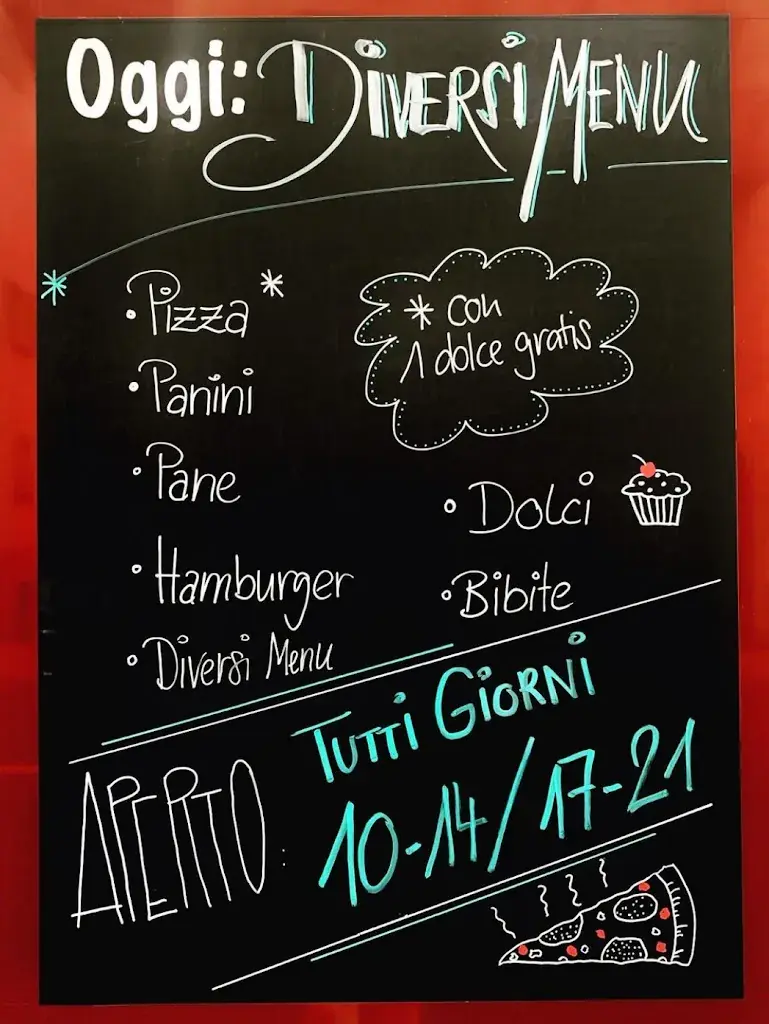 Oggi: Diversi Menu
* 
• Pizza *
* con
1 dolce gratis
• Panini
• Pane
• Hamburger
• Diversi Menu
• Dolci
• Bibite
APERTO:
TUTTI GIORNI
10-14/17-21